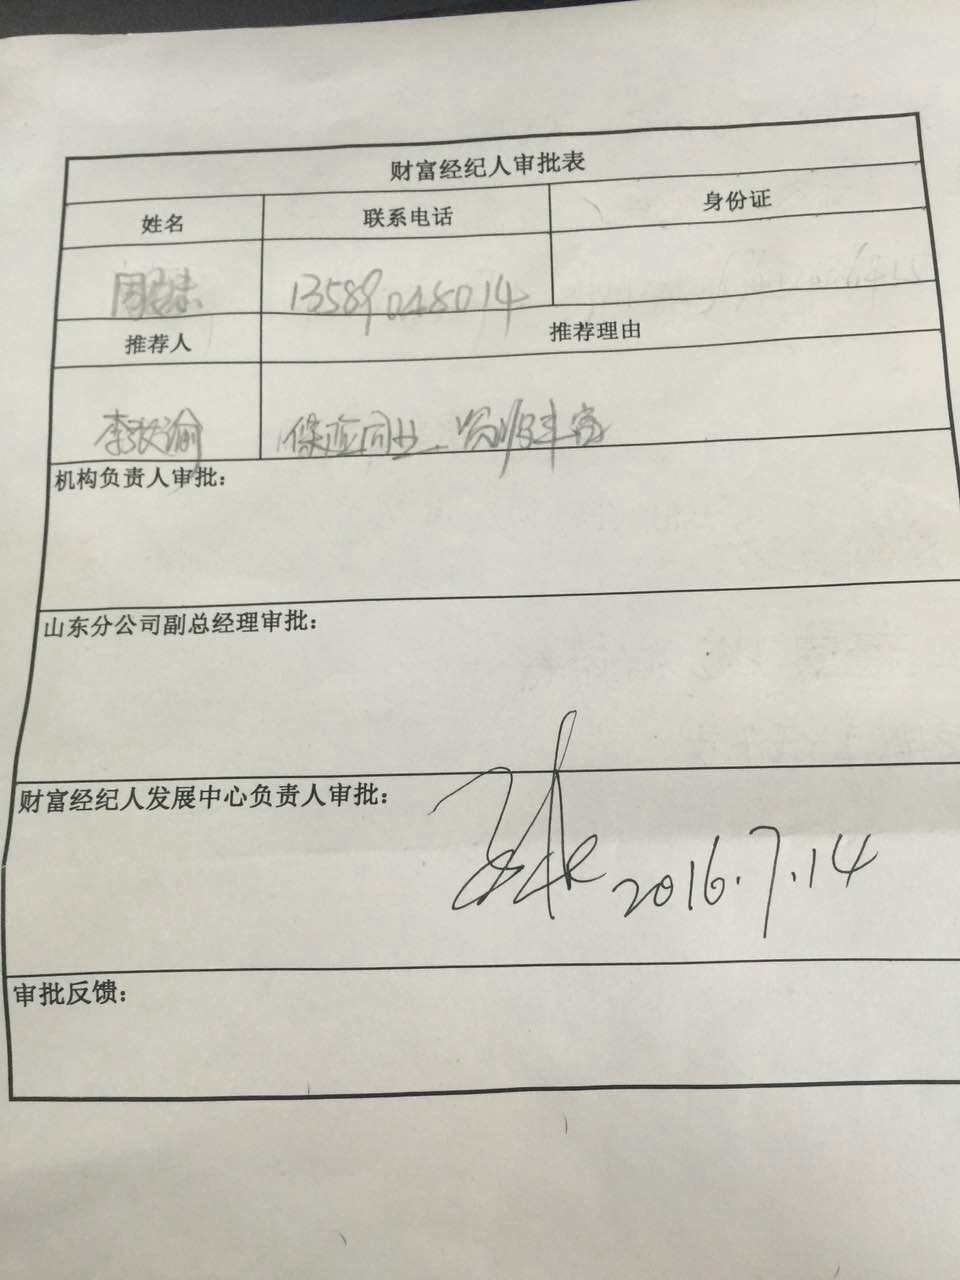 财富经纪人审批表
姓名 联系电话 身份证
13589048014
推荐人 推荐理由
李 渝 保险同业、资源丰富
机构负责人审批：
山东分公司副总经理审批：
财富经纪人发展中心负责人审批：
2016.7.14
审批反馈：